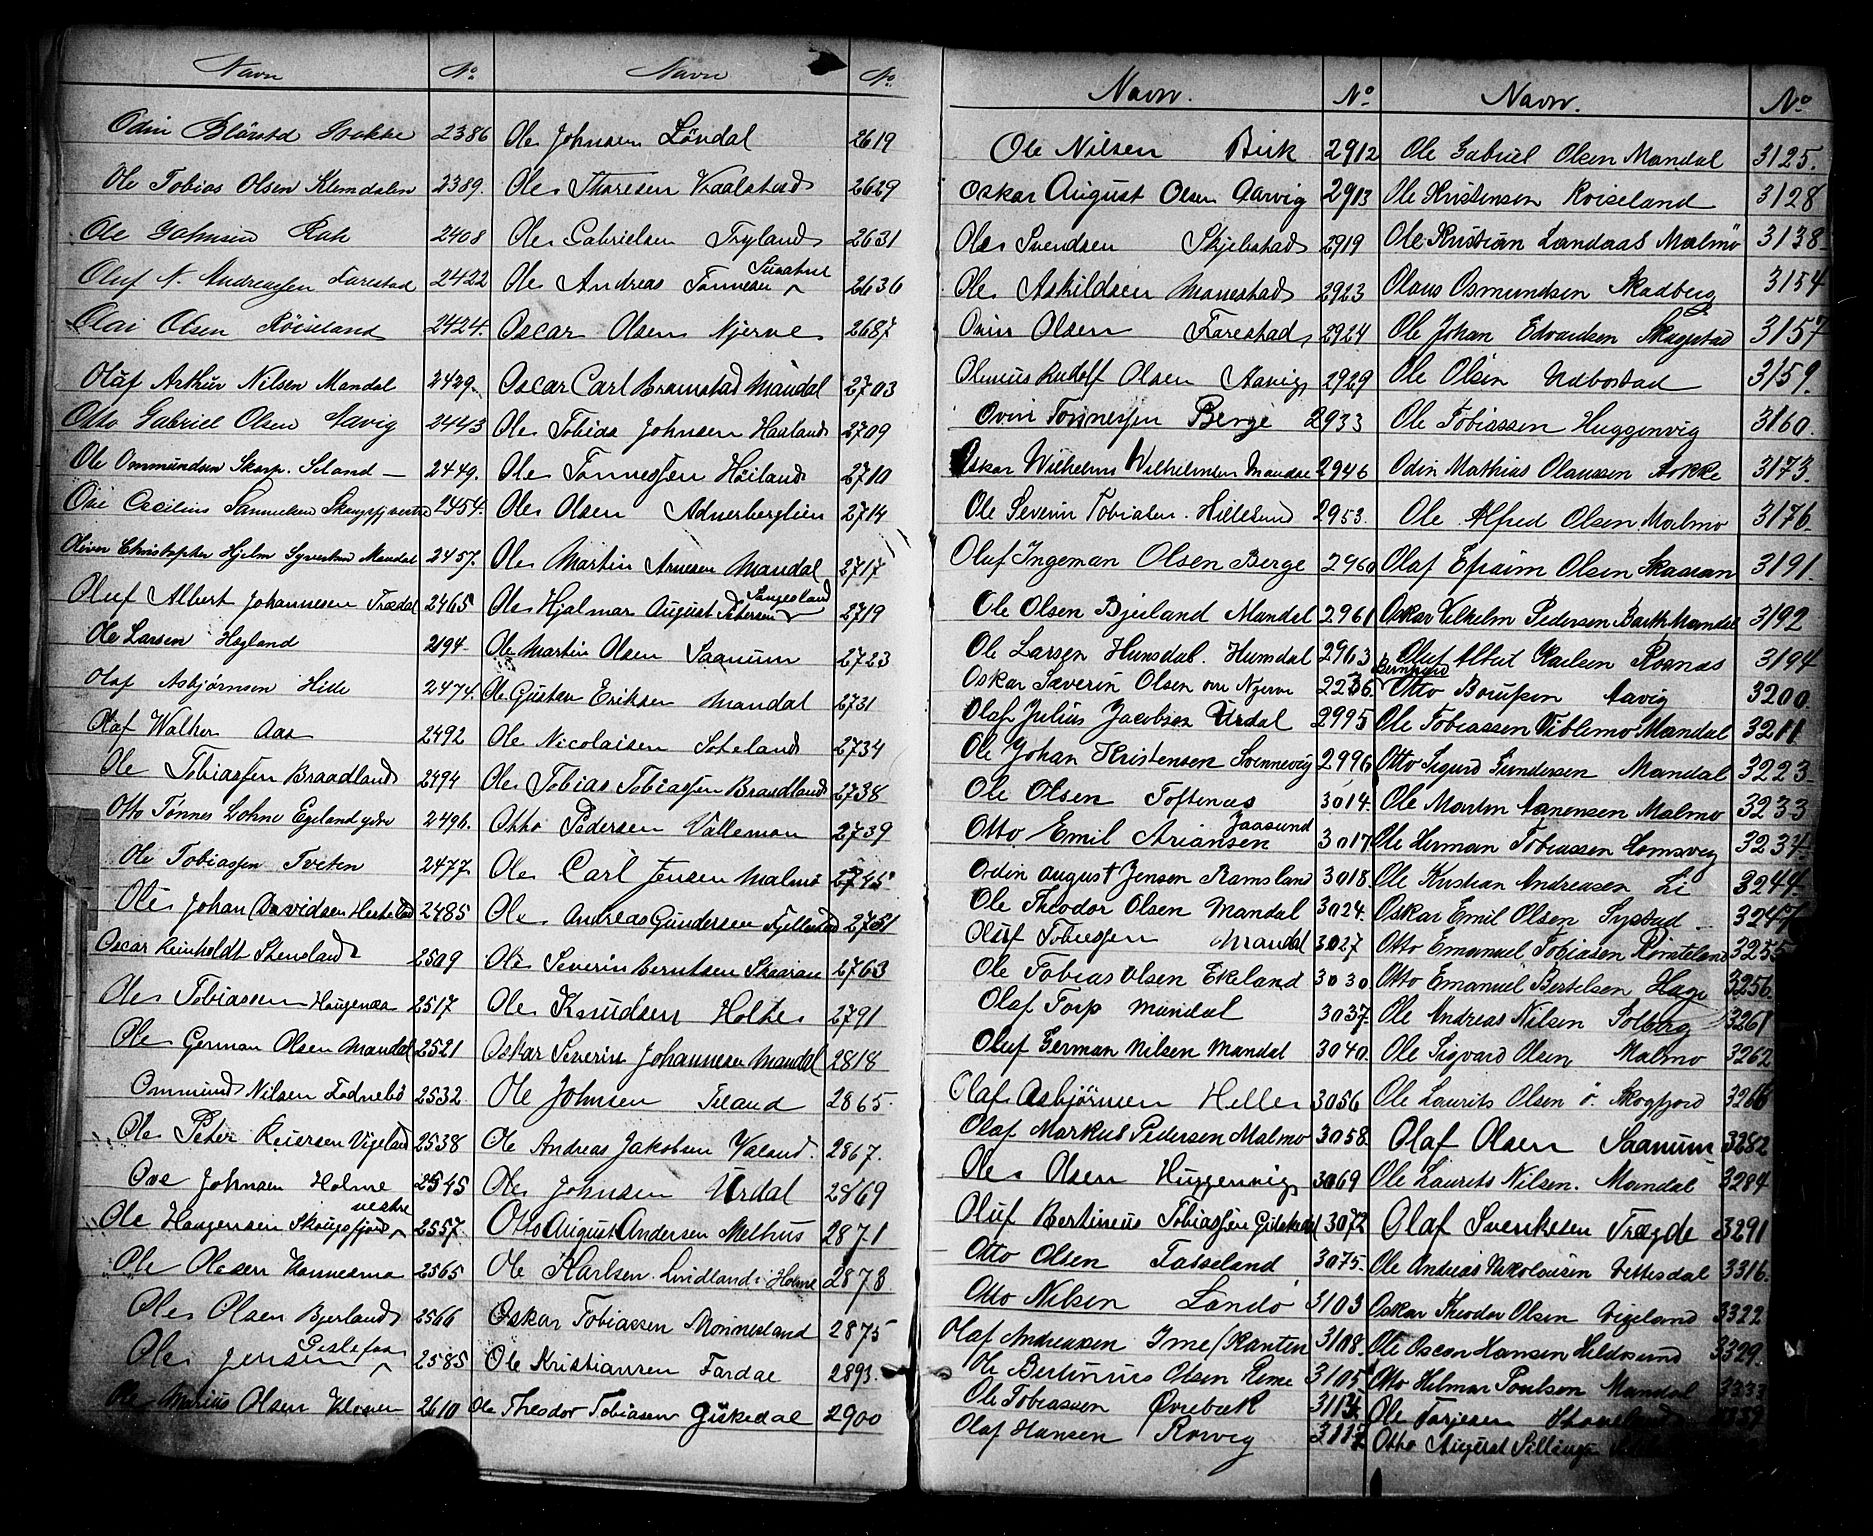 Navn No
Odin Stokke 2386
Ole Tobias Olsen Klemdalen 2389.
Ole Johnsen 2408
Oluf N. Andreassen Farestad 2422
Olai Olsen Röiseland 2424.
Oluf Arthur Nilsen Mandal 2429.
Otto Gabriel Olsen Aavig 2443
Ole Ommundsen Skarp. Seland 2449.
Ove Cecilius Samuelsen 2454.
Oliver Christopher Hjelm Syvertsen Mandal 2457.
Oluf Albert Johannesen Trædal 2465
Ole Larsen Hogland 2194
Olaf Asbjørnsen Hille 2474.
Olaf Walther Aas 2492
Ole Tobiassen Braadland 2494
Otto Tønnes Lohne Egeland ydre 2496.
Ole Tobiassen Tveten 2477
Ole Johan Davidsen 2485
Oscar Reinholdt Stensland 2509
Ole Tobiassen Haugenæs 2517
Ole German Olsen Mandal 2521
Ommund Nilsen Fodnebö 2532
Ole Peter Reiersen Vigeland 2538
Ove Johnsen Holme 2545
Ole Haagensen Skougsfjord vestre 2557.
Ole Olesen Hannesmo 2565
Ole Olsen Bjerland 2566
Ole Jensen 2585
Ole Marius Olsen 2610
Navn No
Ole Johnsen Löndal 2619
Ole Thoresen Vraalstad 2629
Ole Gabrielsen Tryland 2631
Ole Andreas Tönnesen 2636
Oscar Olsen Njerve 2687
Oscar Carl Bramstad Mandal 2703
Ole Tobias Johnsen Haaland 2709
Ole Tönnessen Höiland 2710
Ole Olsen 2714
Ole Martin Arnesen Mandal 2717
Ole Hjalmar August Petersen Sangesland 2719
Ole Martin Olsen Saanum 2723
Ole Gustav Eriksen Mandal 2731
Ole Nicolaisen Soteland 2734
Ole Tobias Tobiassen Braadland 2738
Otto Pedersen Valleman 2739
Ole Carl Jensen Malmö 2745
Ole Andreas Gundersen Fjellestad 2751
Ole Severin Berntsen Skaaran 2763
Ole Knudsen Holte 2791
Oskar Severin Johannesen Mandal 2818
Ole Johnsen Teland 2865
Ole Andreas Jakobsen Valand. 2867.
Ole Johnsen Urdal 2869
Otto August Andersen Melhus 2871
Ole Karlsen Lindland i Holme 2873
Oskar Tobiassen Mönnesland 2875
Ole Kristiansen Fardal 2893.
Ole Theodor Tobiassen Giskedal 2900
Navn. No
Ole Nilsen Birk 2912
Oskar August Olsen Aavig 2913
Ole Svendsen Skjebstad 2919
Ole Askildsen Monestad 2923
Ovin Olsen Farestad 2924
Olenius Rudolf Olsen Aavig 2929
Ovin Tönnessen Berge 2933
Oskar Wilhelm Wilhelmsen Mandal 2946
Ole Severin Tobiasen. Hillesund 2953.
Oluf Ingeman Olsen Berge 2960
Ole Olsen Bjerland Mandal 2961
Ole Larsen Hunsdal. Humdal 2963
Oskar Severin Olsen Njerve 2236.
Olaf Julius Jacobsen Urdal 2995
Ole Johan Kristensen Svennevig 2996
Ole Olsen Toftenæs 3014.
Otto Emil Ariansen Jaasund 3017
Odin August Jensen Ramsland 3018
Ole Theodor Olsen Mandal 3024
Oluf Tobiessen Mandal 3027
Ole Tobias Olsen Ekeland 3030
Olaf Torp Mandal 3037
Oluf German Nilsen Mandal 3040
Olaf Asbjörnsen Heller 3056
Olaf Markus Pedersen Malmo 3058
Ole Olsen Huggenvig 3069
Oluf Bertineus Tobiassen Giskedal 3072
Otto Olsen Tasseland 3075.
Otto Nilsen Landö 3103
Olaf Andreassen Ime/Ranten 3108.
Ole Bertinius Olsen Reme 3105
Ole Tobiassen Övrebæk
Olaf Hansen Rorvig
Navn. No
Ole Gabriel Olsen Mandal 3125.
Ole Kristensen Roiseland 3128
Ole Kristian Landaas Malmö 3138
Olaus Osmundsen Skadberg 3154
Ole Johan Edvardsen Skagestad 3157
Ole Olsen Udbostad 3159.
Ole Tobiassen Huggenvig 3160.
Odin Mathias Olaussen Stokke 3173.
Ole Alfred Olsen Malmo 3176.
Olaf Efraim Olsen Skaaran 3191.
Oskar Vilhelm Pedersen Barth Mandal 3192
Oluf Albert Karlsen Rosnæs 3194
Otto Bernhard Aavig 3200.
Ole Tobiassen Viblemo Mandal 3211
Otto Sigurd Gundersen Mandal 3223
Ole Martin Aanensen Malmo 3233
Ole Herman Tobiassen Homsvig 3234
Ole Kristian Andreasen Li 3244
Oskar Emil Olsen Systad 3247
Otto Emanuel Tobiasen 3255
Otto Emanuel Bertelsen Hage 3256.
Ole Andreas Nilsen Solberg 3261
Ole Sigvard Olsen Malmo 3262
Ole Laurits Olsen ö. Skogfjord 3266
Olaf Olsen Saanum 3282
Ole Laurits Nilsen. Mandal 3284
Olaf Svenksen Trægde 3291
Ole Andreas Nikolaisen Vettesdal 3316.
Oskar Theodor Olsen Vigeland 3322
Ole Oscar Hansen Hildosund 3329.
Otto Hilmar Poulsen Mandal 3333
Ole Tarjesen 3339
Otto August